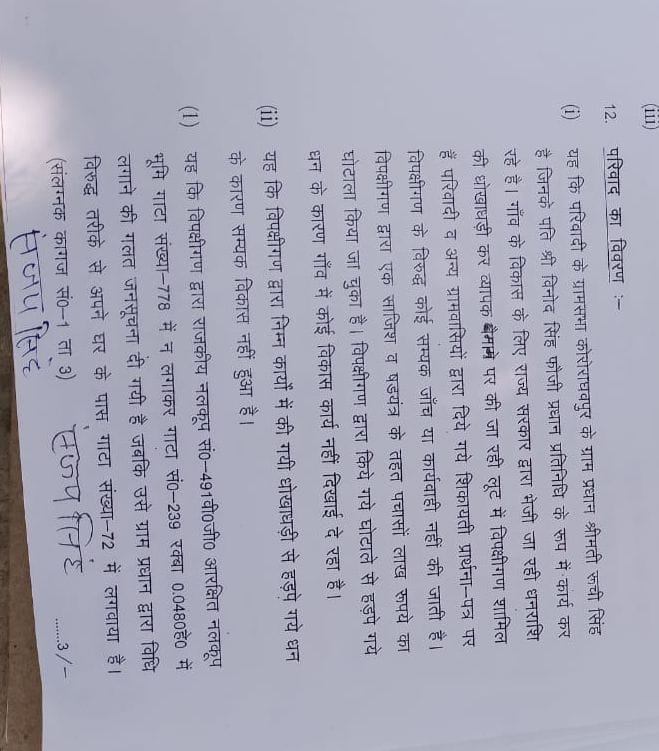 (iii)
12. परिवाद का विवरण :–
(i) यह कि परिवादी के ग्रामसभा कोरोराघवपुर के ग्राम प्रधान श्रीमती रूबी सिंह
है जिनके पति श्री विनोद सिंह फौजी प्रधान प्रतिनिधि के रूप में कार्य कर
रहे है। गाँव के विकास के लिए राज्य सरकार द्वारा भेजी जा रही धनराशि
की धोखाधड़ी कर व्यापक पैमाने पर की जा रही लूट में विपक्षीगण शामिल
है परिवादी व अन्य ग्रामवासियों द्वारा दिये गये शिकायती प्रार्थना–पत्र पर
विपक्षीगण के विरुद्ध कोई सम्यक जाँच या कार्यवाही नहीं की जाती है।
विपक्षीगण द्वारा एक साजिश व षडयंत्र के तहत पचासों लाख रूपये का
घोटाला किया जा चुका है। विपक्षीगण द्वारा किये गये घोटाले से हड़पे गये
धन के कारण गाँव मे कोई विकास कार्य नहीं दिखाई दे रहा है।
(ii) यह कि विपक्षीगण द्वारा निम्न कार्यों में की गयी धोखाधड़ी से हड़पे गये धन
के कारण सम्यक विकास नही हुआ है।
(1) यह कि विपक्षीगण द्वारा राजकीय नलकूप सं०–491वी०जी० आरक्षित नलकूप
भूमि गाटा संख्या–778 में न लगाकर गाटा सं०–239 रकबा 0.0480हे० में
लगाने की गलत जनसूचना दी गयी है जबकि उसे ग्राम प्रधान द्वारा विधि
विरुद्ध तरीके से अपने घर के पास गाटा संख्या–72 में लगवाया है।
(संलग्नक कागज सं०–1 ता 3)
........3/–
संजय सिंह
संजय सिंह